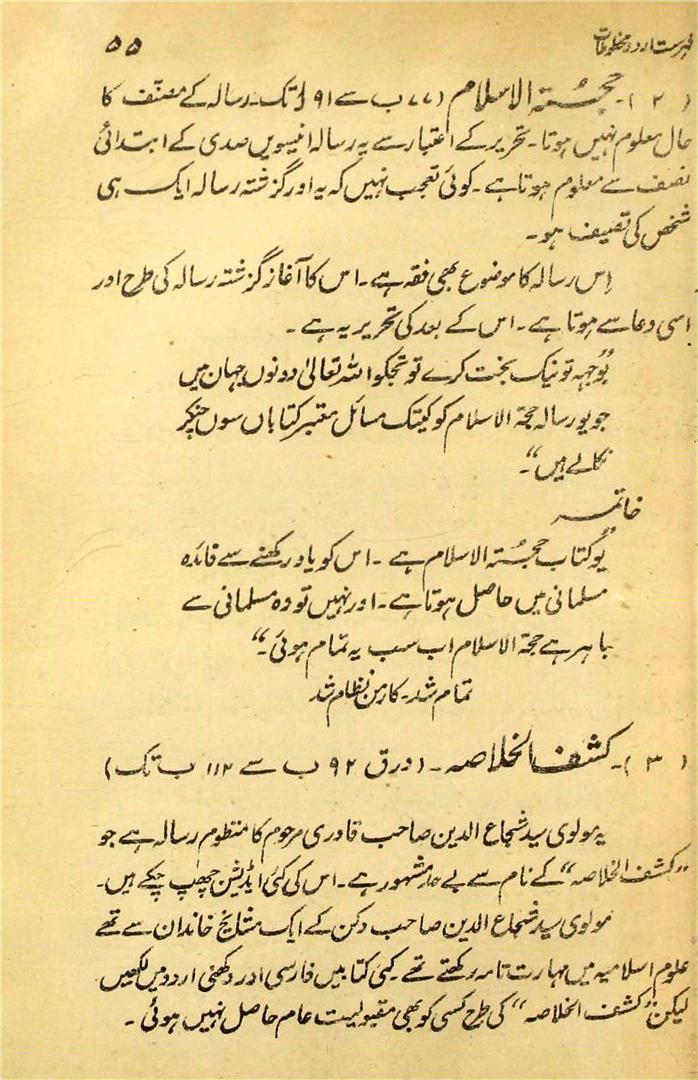 فہرست اردو مخطوطات ۵۵
(۲)۔ حجتہ الاسلام (۷۷ ب سے ۹۱ ا تک۔ رسالہ کے مصنّف کا
حال معلوم نہیں ہوتا۔ تحریر کے اعتبار سے یہ رسالہ انیسویں صدی کے ابتدائی
نصف سے معلوم ہوتا ہے۔ کوئی تعجب نہیں کہ یہ اور گزشتہ رسالہ ایک ہی
شخص کی تصنیف ہو۔
اِس رسالہ کا موضوع بھی فقہ ہے۔ اس کا آغاز گزشتہ رسالہ کی طرح اور
اسی دعا سے ہوتا ہے۔ اس کے بعد کی تحریر یہ ہے۔
”بوجہہ تو نیک بخت کرے تو تجکو اللہ تعالیٰ دونوں جہان میں
جو یو رسالہ حجۃ الاسلام کو کیتک مسائل معتبر کتاباں سوں چنکر
نکالے ہیں“۔
خاتمہ
”یو کتاب حجتہ الاسلام ہے۔ اس کو یاد رکھنے سے فائدہ
مسلمانی میں حاصل ہوتا ہے۔ اور نہیں تو وہ مسلمانی سے
باہر ہے حجۃ الاسلام اب سب یہ تمام ہوئی۔“
تمام شد۔ کار من نظام شد
(۳)۔ کشف الخلاصہ۔ (ورق ۹۲ ب سے ۱۱۲ ب تک)
یہ مولوی سید شجاع الدین صاحب قادری مرحوم کا منظوم رسالہ ہے جو
”کشف الخلاصہ“ کے نام سے بے حد مشہور ہے۔ اس کی کئی ایڈیشن چھپ چکے ہیں۔
مولوی سید شجاع الدین صاحب دکن کے ایک مشایخ خاندان سے تھے
علوم اسلامیہ میں مہارت تامہ رکھتے تھے۔ کئی کتابیں فارسی اور دکھنی اردو میں لکھیں
لیکن ”کشف الخلاصہ“ کی طرح کسی کو بھی مقبولیت عام حاصل نہیں ہوئی۔